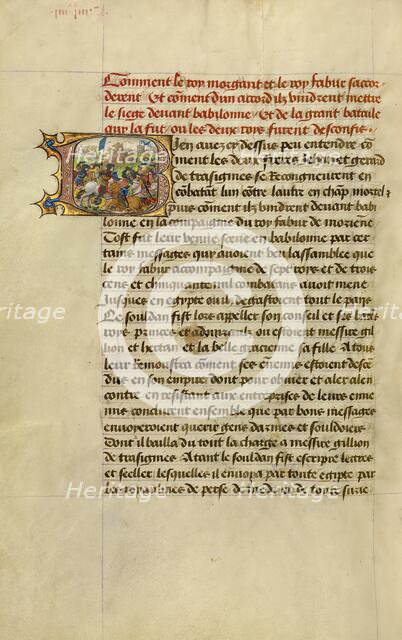 Comment le roy morgant et le roy fabur saccor
derent Et coment dun accord ilz vindrent mettre
le siege devant babilonne Et de la grant bataile
quy la fut ou les deux roys furent desconfis
Bien auez cy dessus peu entendre co
ment les deux freres Jehan et gerard
de trasignies se Recongneurent en
cobatat lun cotre lautre en chap mortel
puis coment ilz vindrent deuant babi
lonne en la compaignie du roy fabur de moriene
Tost fut leur venue sceue en babilonne par cer
tains messages quy auoient veu lassamblee que
le roy fabur accompaignie de sept roys et de trois
cens et chinquante mil combatans auoit mene
Jusques en egypte ou il degastoient tout le pays
Le souldan fist lors appeller son conseil et ses
roys princes et admiraulx ou estoient messire gil
lion et hertan et la belle gracienne sa fille A tous
leur Remoustra coment ses ennemis estoient desce
dus en son empire dont pour obuier et aler alen
contre en resistant aux entreprises de leurs enne
mis conclurent ensemble que par bons messages
enuoyeroient querir gens darmes et souldoiers
Dont il bailla du tout la charge a messire gillion
de trasignies Atant le souldan fist escripre lettres
et seeller lesquelles il enuoya par toute egypte par
les royaulmes de perse de et de toute surie
Heritage
Heritage
Heritage
Heritage
Heritage